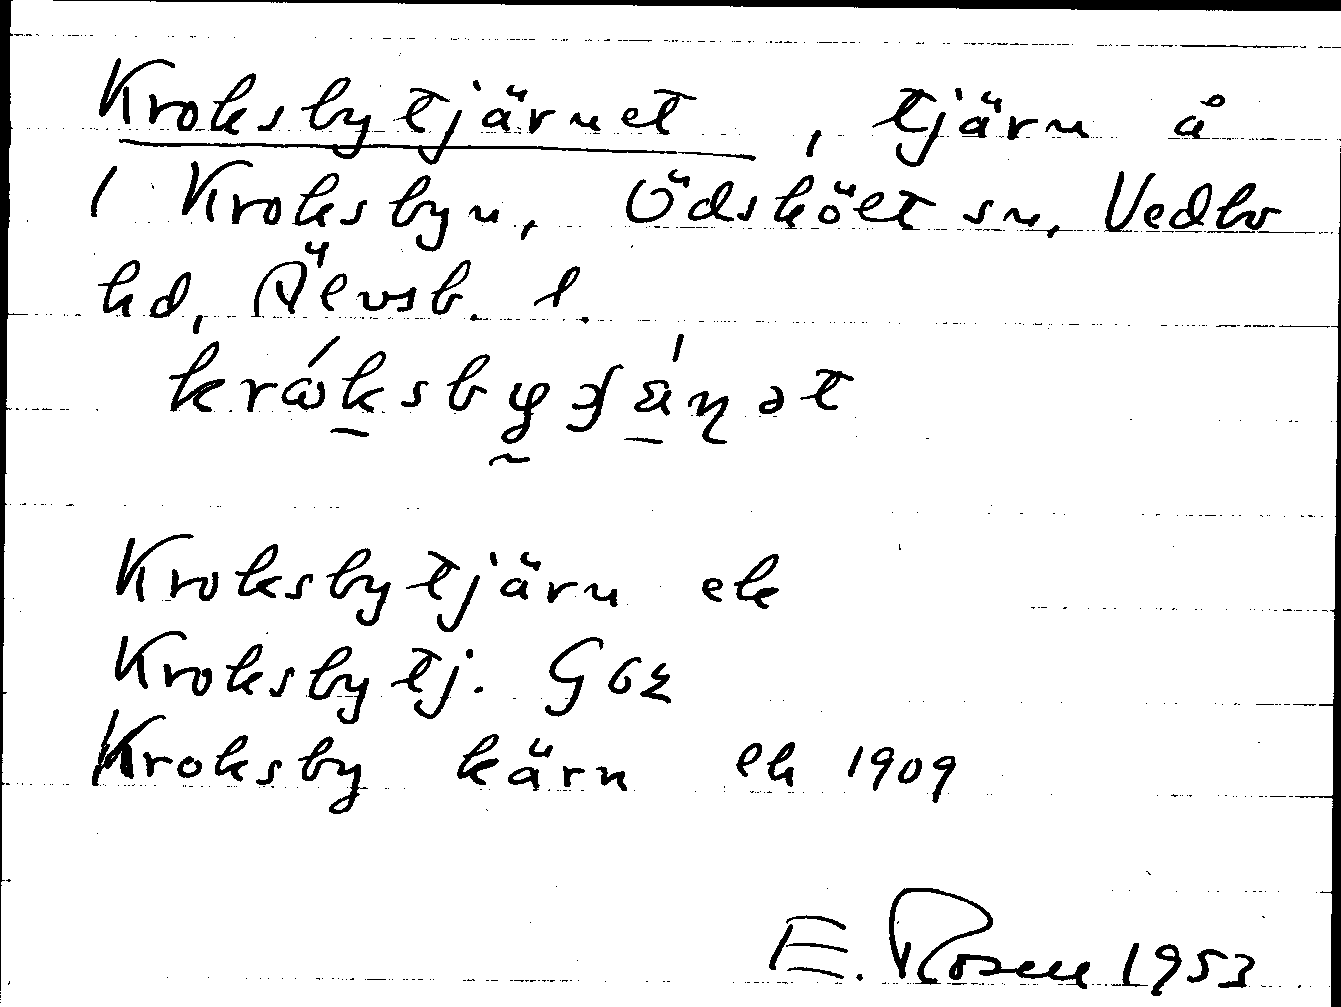 Kroksbytjärnet, tjärn å
1 Kroksbyn, Ödskölt sn, Vedbo
hd, Älvsb. l.
Kroksbytjärn ek
Kroksbytj. G
Kroksby kärn ek 1909
E. Rosell 1953